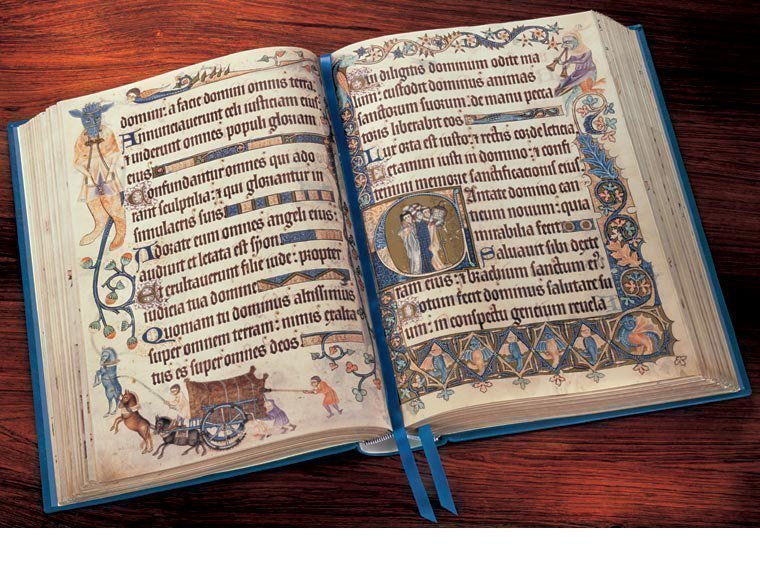 domini: a facie domini omnis terra
Annunciaverunt celi iusticiam eius:
& viderunt omnes populi gloriam
eius
Confundantur omnes qui ado
rant sculptilia: & qui gloriantur in
simulacris suis
Adorate eum omnes angeli eius:
audiuit et letata est syon
Et exultaverunt filie iude: propter
iudicia tua domine
Quoniam tu dominus altissimus
super omnem terram: nimis exalta
tus es super omnes deos
Qui diligitis dominum odite ma
lum: custodit dominus animas
sanctorum suorum: de manu pecca
toris liberabit eos
Lux orta est iusto: & rectis corde leticia
Letamini iusti in domino: & confi
temini memorie sanctificationis eius
Cantate domino can
ticum nouum: quia
mirabilia fecit
Salvavit sibi dexte
ram eius: & brachium sanctum eius
Notum fecit dominus salutare su
um: in conspectu gencium reuela